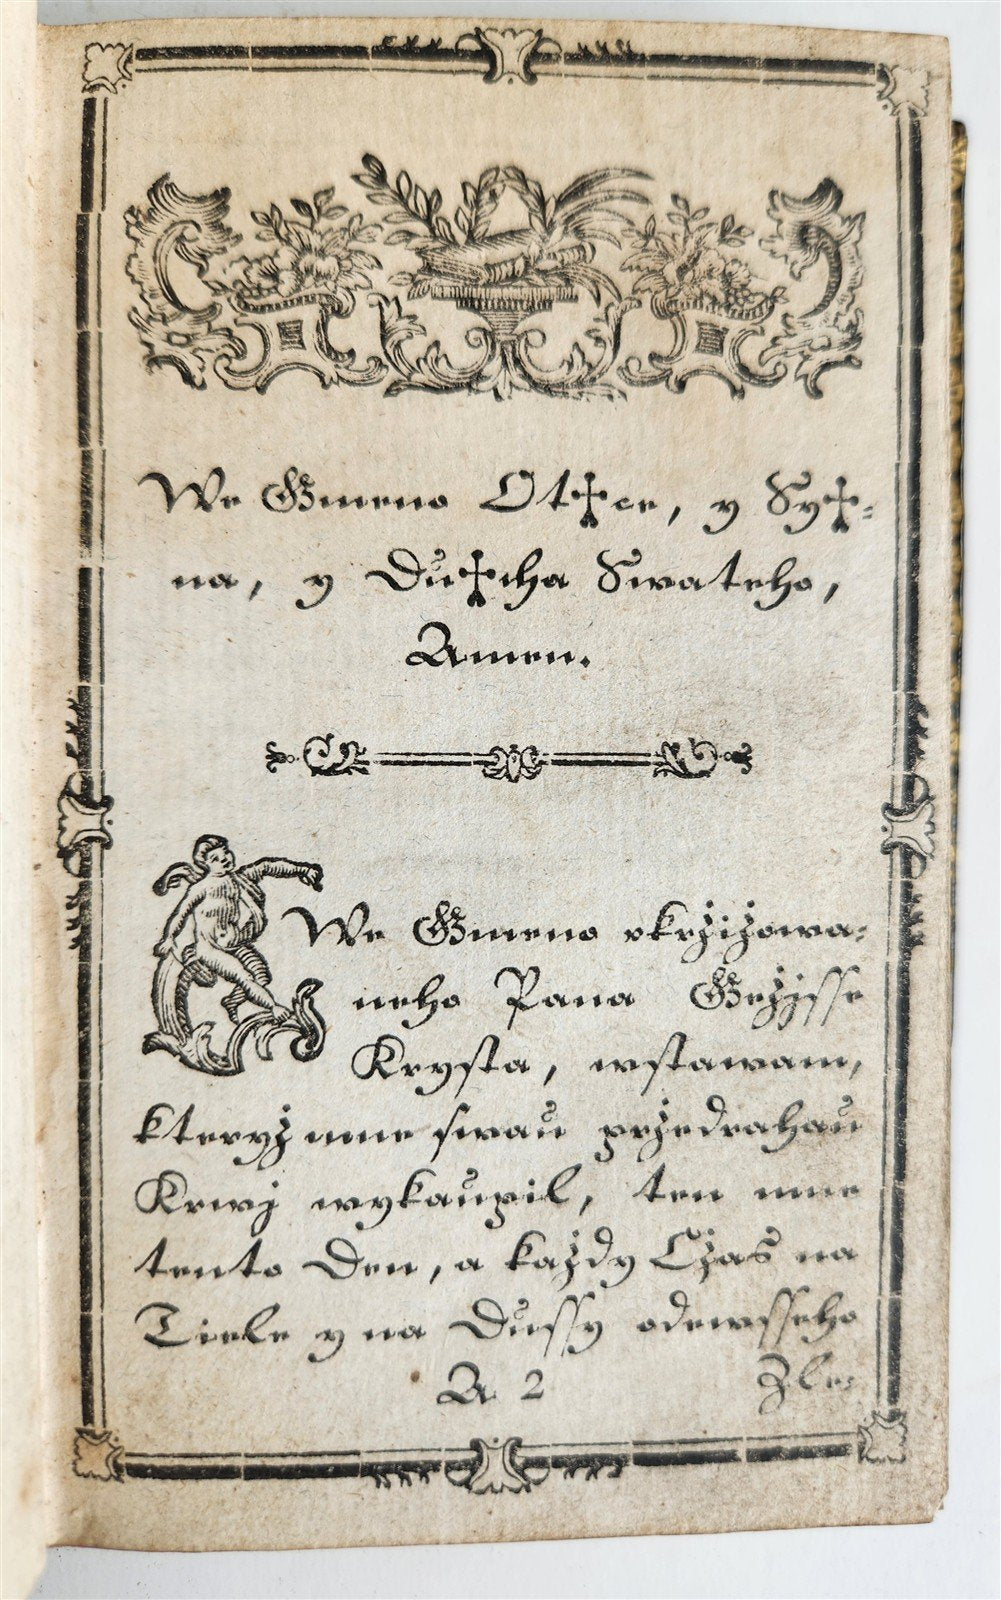 We Gmeno Ot✠ce, y Sy✠=
na, y Du✠cha Swateho,
Amen.
We Gmeno vkržižowa=
neho Pana Gežjsse
Krysta, wstawam,
kteryž mne swau pržedrahau
Krwj wykaupil, ten mne
tento Den, a každy Cžas na
Tiele y na Dussy odewsseho
A 2 Zle=